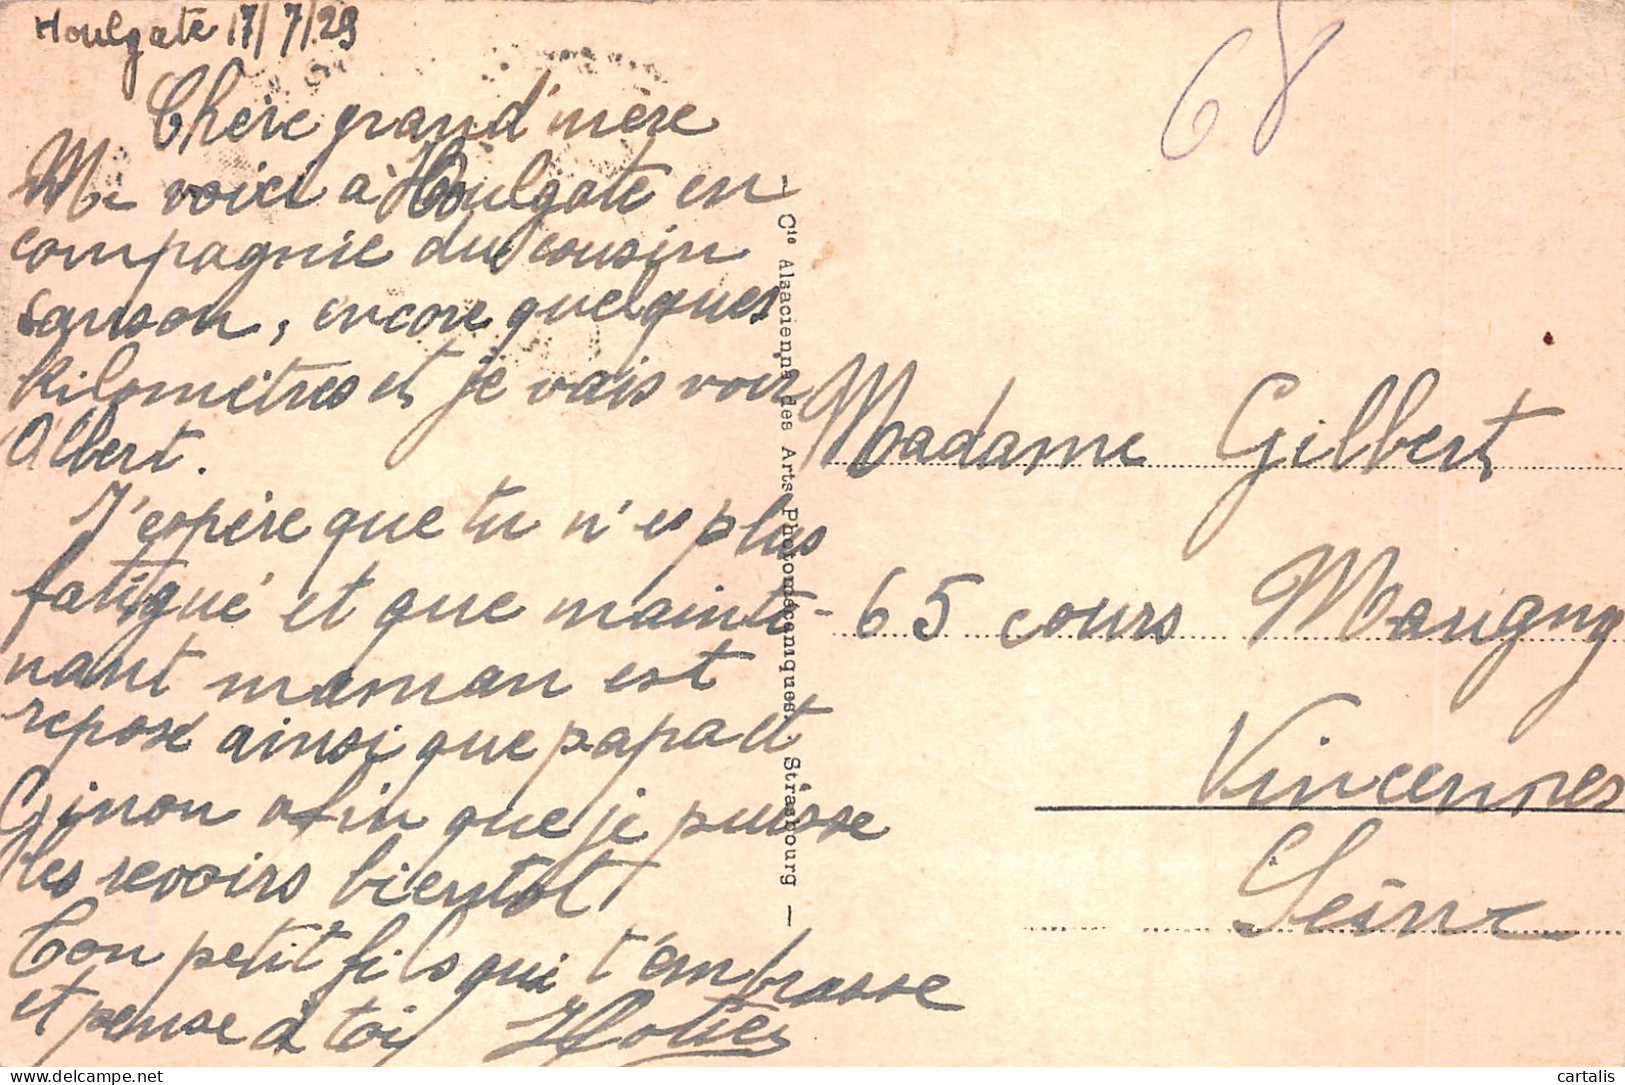 Houlgate 17/7/29
68
Chère grand'mère
Me voici à Houlgate en
compagnie du cousin
Sanson, encore quelques
kilomètres et je vais voir
Albert.
J'espère que tu n'es plus
fatigué et que mainte-
nant maman est
reposé ainsi que papa et
Ginon afin que je puisse
les revoirs bientot.
Ton petit fils qui t'embrasse
et pense à toi
— Cie Alsacienne des Arts Photomécaniques. Strasbourg —
Madame Gilbert
65 cours Marigny
Vincennes
Seine
cartalis